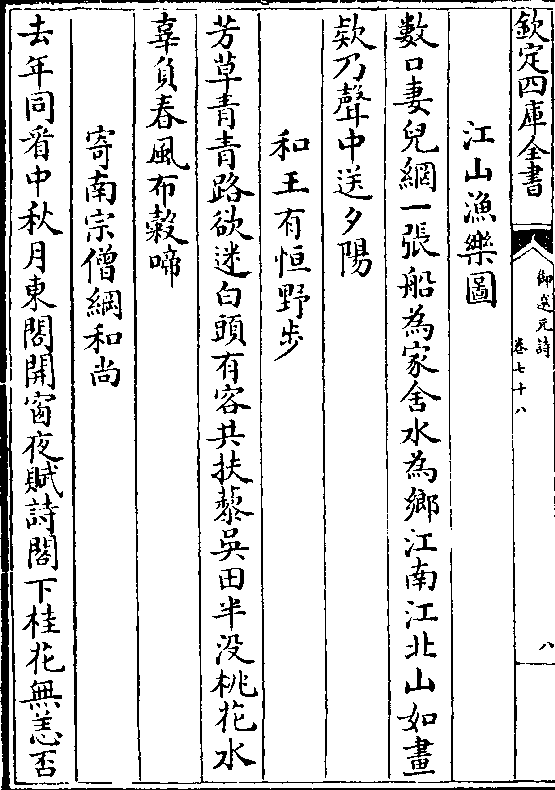 欽定四庫全書
御選元詩
卷七十八
八
江山漁樂圖
數口妻兒網一張船為家舍水為鄉江南江北山如畫
欵乃聲中送夕陽
和王有恒野步
芳草青青路欲迷白頭有客共扶藜吳田半没桃花水
辜負春風布榖啼
寄南宗僧綱和尚
去年同看中秋月東閣開窗夜賦詩閣下桂花無恙否